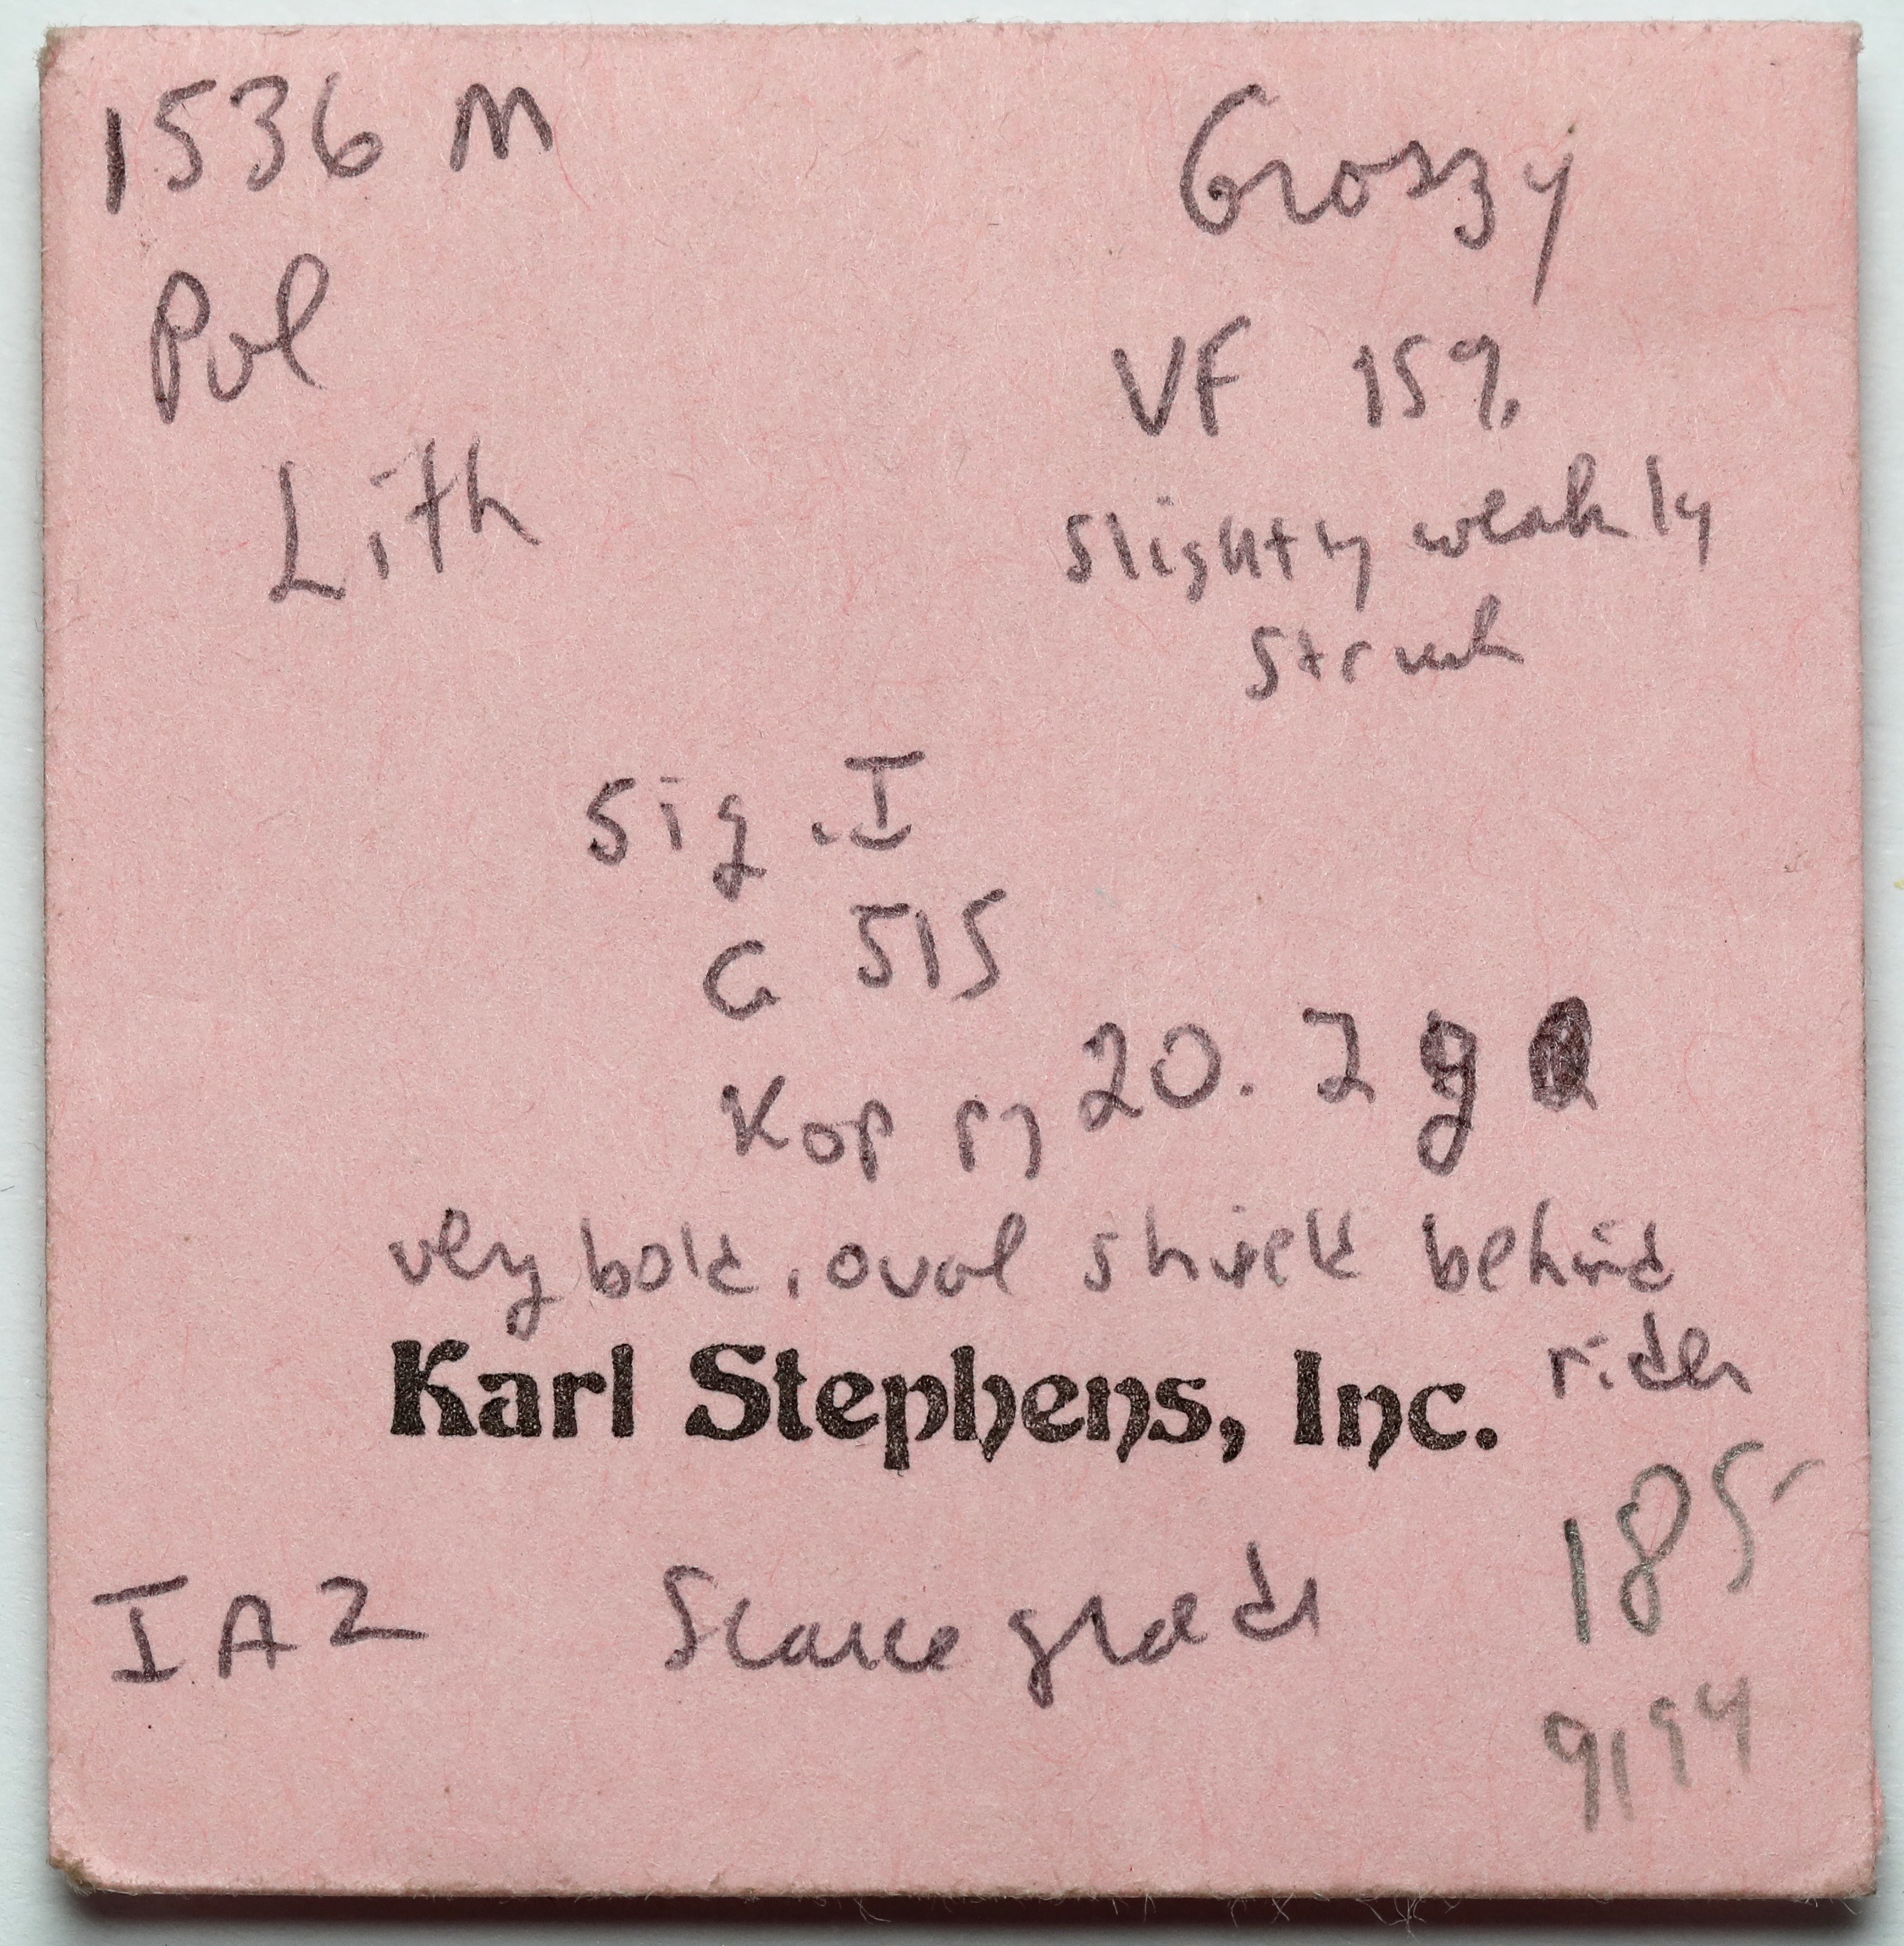 1536 M
Groszy
Pol
VF 15%
Lith
slightly weakly
struck
Sig. I
G 515
Kop pg 20. 2 g
very bold, oval shield behind
rider
Karl Stephens, Inc.
185-
IA2 Scarce grade
9/94